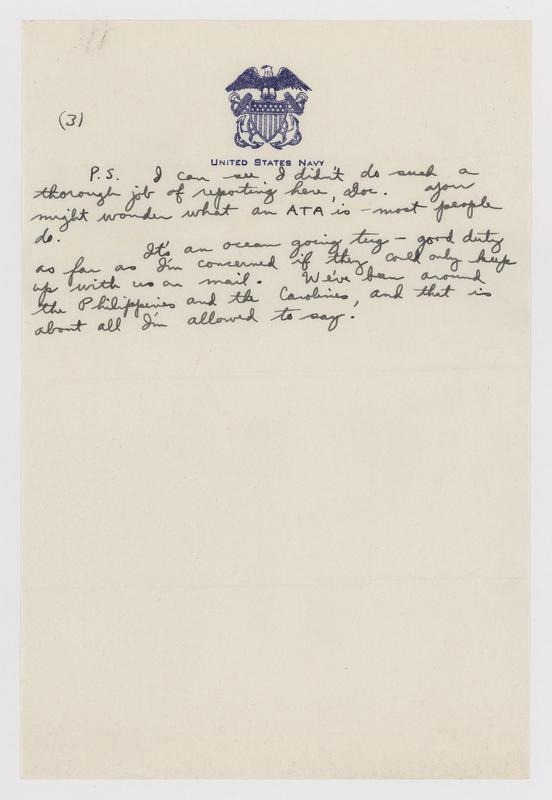 (3)
UNITED STATES NAVY
P.S. I can see I didn't do such a
thorough job of reporting here, Doc. You
might wonder what an ATA is – most people
do.
It's an ocean going tug – good duty
as far as I'm concerned if they could only keep
up with us on mail. We've ban around
the Philippines and the Carolines, and that is
about all I'm allowed to say.